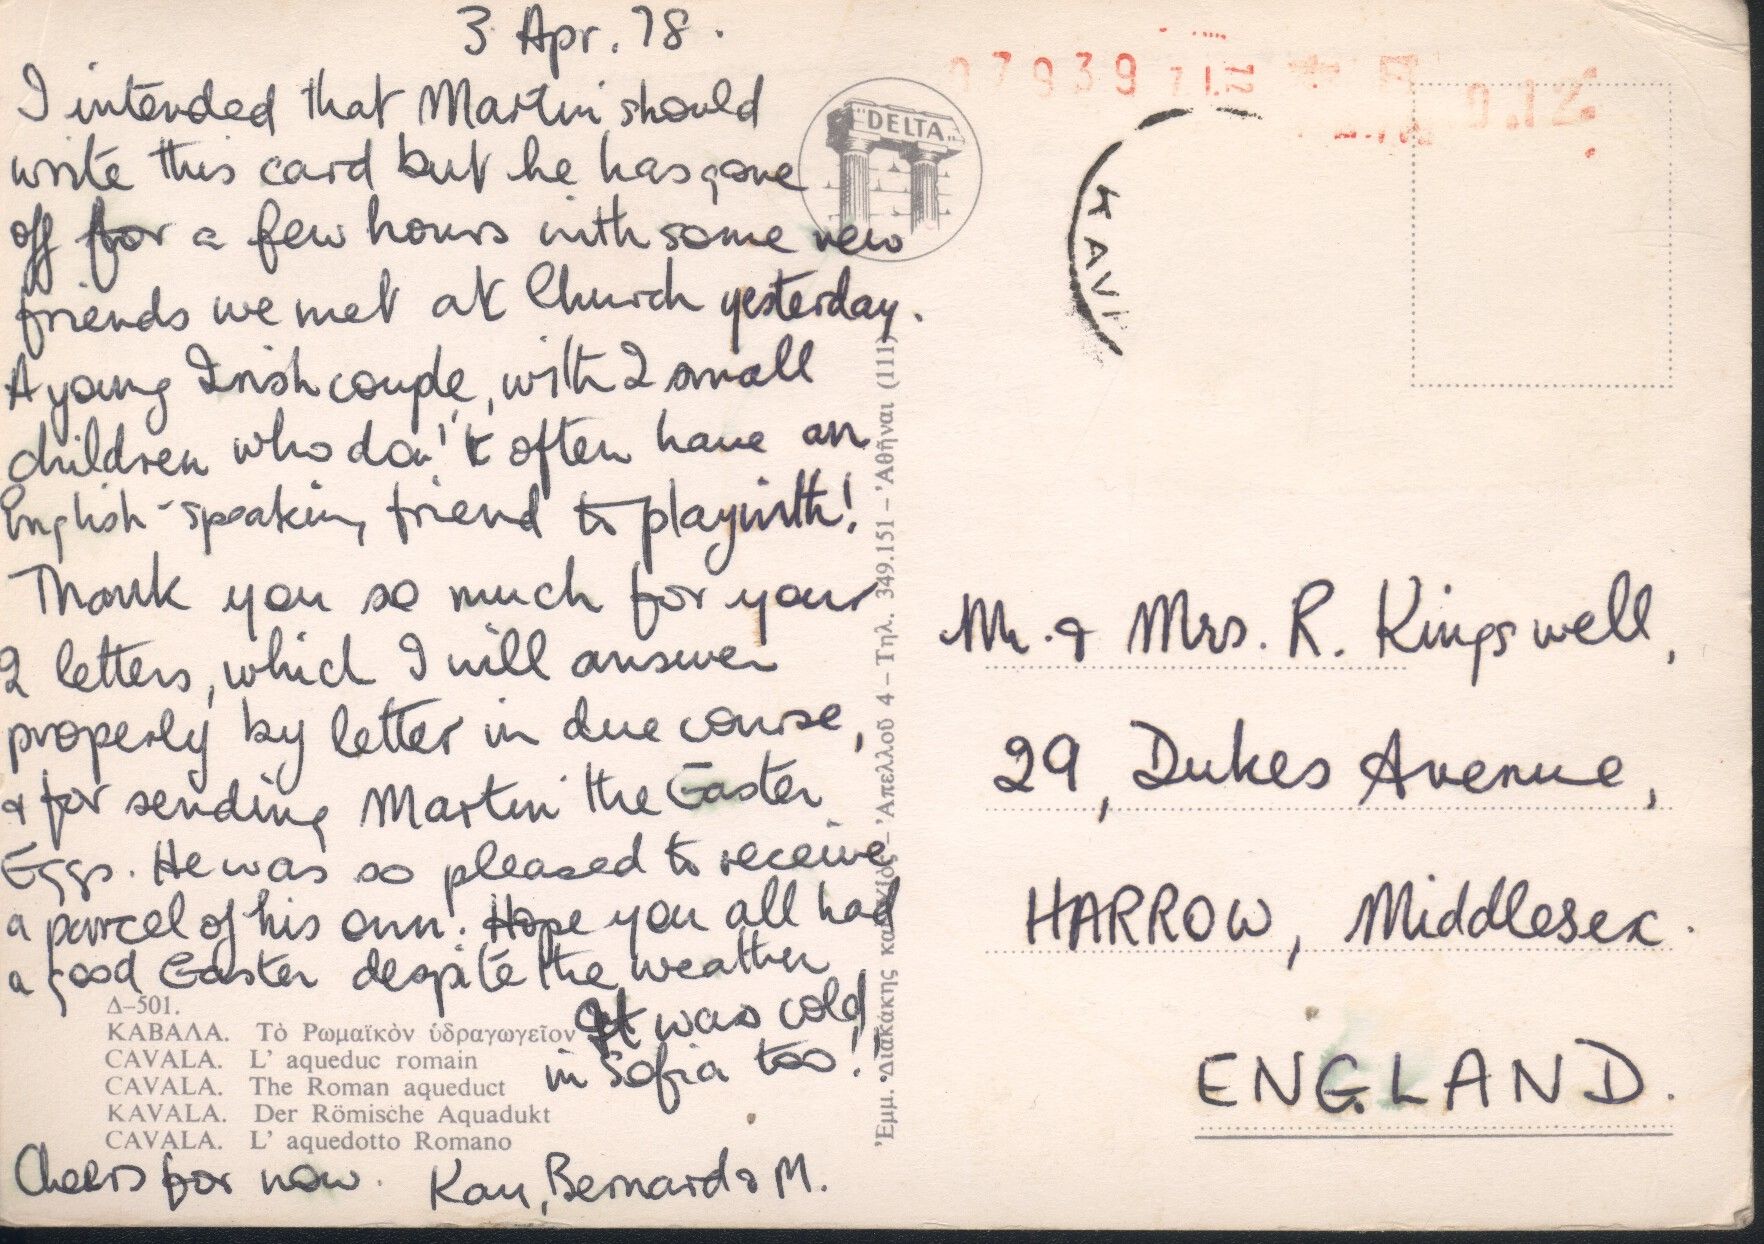 3 Apr. 78.
I intended that Martin should
write this card but he has gone
off for a few hours with some new
friends we met at Church yesterday.
A young Irish couple, with 2 small
children who don't often have an
English-speaking friend to play with!
Thank you so much for your
2 letters, which I will answer
properly by letter in due course,
& for sending Martin the Easter
Eggs. He was so pleased to receive
a parcel of his own! Hope you all had
a good Easter despite the weather
It was cold
in Sofia too!
Δ-501.
ΚΑΒΑΛΑ. Τὸ Ρωμαϊκὸν ὑδραγωγεῖον
CAVALA. L' aqueduc romain
CAVALA. The Roman aqueduct
KAVALA. Der Römische Aquadukt
CAVALA. L' aquedotto Romano
Cheers for now. Kay, Bernard & M.
"DELTA"
Ἐμμ. Διακάκης 4 – Τηλ. 349.151 – Ἀθῆναι (111)
Mr. & Mrs. R. Kingswell,
29, Dukes Avenue,
HARROW, Middlesex.
ENGLAND.